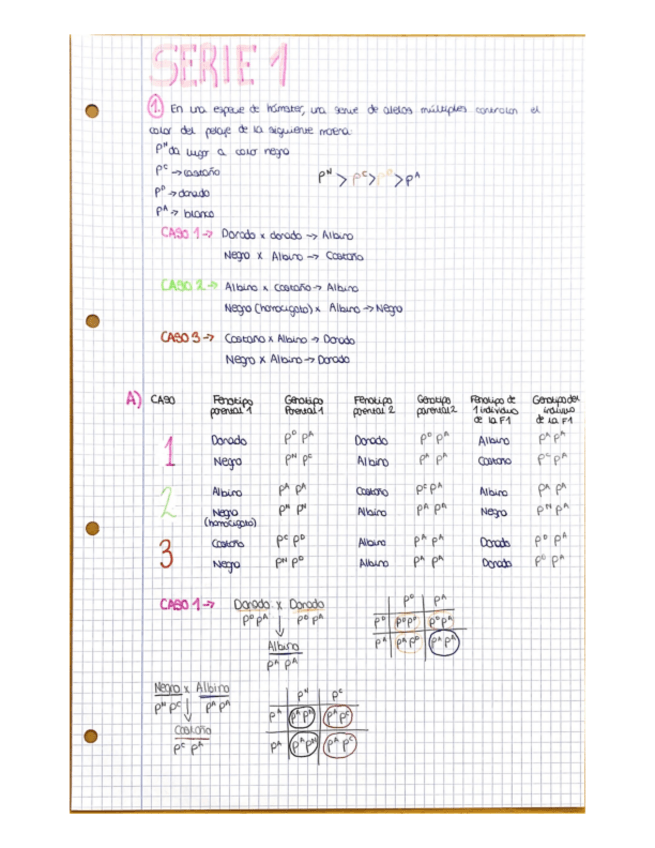 SERIE 1
1. En una especie de hámster, una serie de alelos múltiples controlan el
color del pelaje de la siguiente manera:
Pᴺ da lugar a color negro
Pᶜ → castaño Pᴺ > Pᶜ > Pᴰ > Pᴬ
Pᴰ → dorado
Pᴬ → blanco
CASO 1 → Dorado x dorado → Albino
Negro x Albino → Castaño
CASO 2 → Albino x Castaño → Albino
Negro (homocigoto) x Albino → Negro
CASO 3 → Castaño x Albino → Dorado
Negro x Albino → Dorado
A) CASO Fenotipo parental 1 Genotipo Parental 1 Fenotipo parental 2 Genotipo parental 2 Fenotipo de 1 individuo de la F1 Genotipo del individuo de la F1
1 Dorado Pᴰ Pᴬ Dorado Pᴰ Pᴬ Albino Pᴬ Pᴬ
Negro Pᴺ Pᶜ Albino Pᴬ Pᴬ Castaño Pᶜ Pᴬ
2 Albino Pᴬ Pᴬ Castaño Pᶜ Pᴬ Albino Pᴬ Pᴬ
Negro (homocigoto) Pᴺ Pᴺ Albino Pᴬ Pᴬ Negro Pᴺ Pᴬ
3 Castaño Pᶜ Pᴰ Albino Pᴬ Pᴬ Dorado Pᴰ Pᴬ
Negro Pᴺ Pᴰ Albino Pᴬ Pᴬ Dorado Pᴰ Pᴬ
CASO 1 → Dorado x Dorado
Pᴰ Pᴬ Pᴰ Pᴬ
Albino
Pᴬ Pᴬ
Pᴰ Pᴬ
Pᴰ Pᴰ Pᴰ Pᴰ Pᴬ
Pᴬ Pᴬ Pᴰ Pᴬ Pᴬ
Negro x Albino
Pᴺ Pᶜ Pᴬ Pᴬ
Castaño
Pᶜ Pᴬ
Pᴺ Pᶜ
Pᴬ Pᴬ Pᴺ Pᴬ Pᶜ
Pᴬ Pᴬ Pᴺ Pᴬ Pᶜ